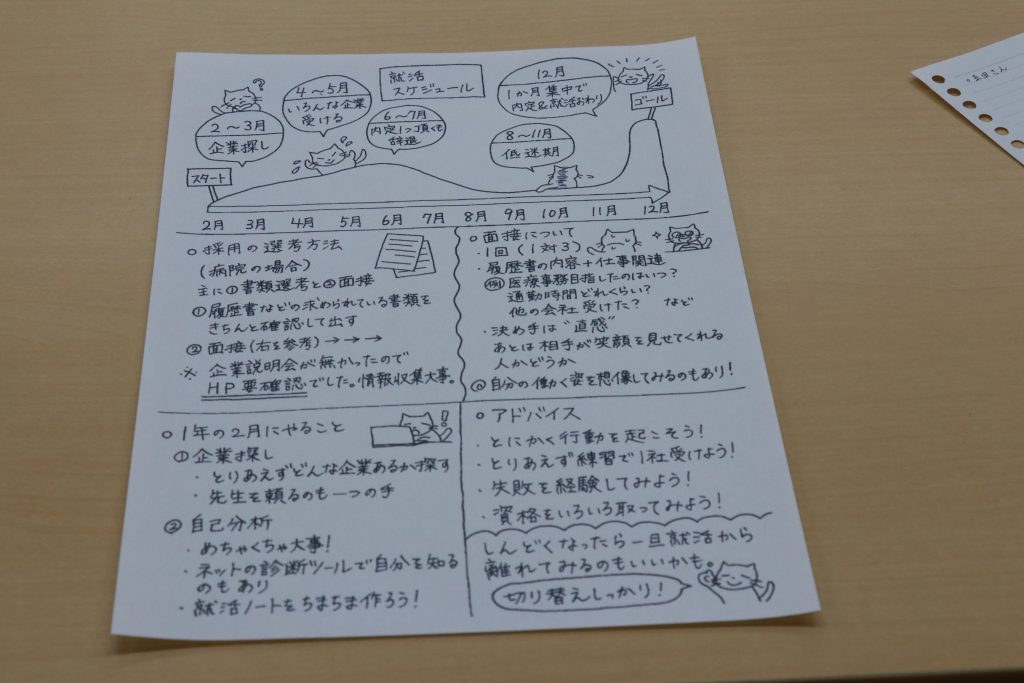 就活
スケジュール
スタート
2～3月
企業探し
?
4～5月
いろんな企業
受ける
6～7月
内定1つ頂くも
辞退
8～11月
低迷期
12月
1か月集中で
内定&就活おわり
ゴール
2月 3月 4月 5月 6月 7月 8月 9月 10月 11月 12月
○採用の選考方法
(病院の場合)
主に①書類選考と②面接
①履歴書などの求められている書類を
きちんと確認して出す
②面接(右を参考)→→→
※企業説明会が無かったので
HP要確認でした。情報収集大事。
○面接について
・1回(1対3)
・履歴書の内容+仕事関連
例 医療事務目指したのはいつ?
通勤時間どれくらい?
他の会社受けた? など
・決め手は"直感"
あとは相手が笑顔を見せてくれる
人かどうか
◎自分の働く姿を想像してみるのもあり!
○1年の2月にやること
①企業探し
・とりあえずどんな企業あるか探す
・先生を頼るのも一つの手
②自己分析
・めちゃくちゃ大事!
・ネットの診断ツールで自分を知る
のもあり
・就活ノートをちまちま作ろう!
○アドバイス
・とにかく行動を起こそう!
・とりあえず練習で1社受けよう!
・失敗を経験してみよう!
・資格をいろいろ取ってみよう!
しんどくなったら一旦就活から
離れてみるのもいいかも。
切り替えしっかり!